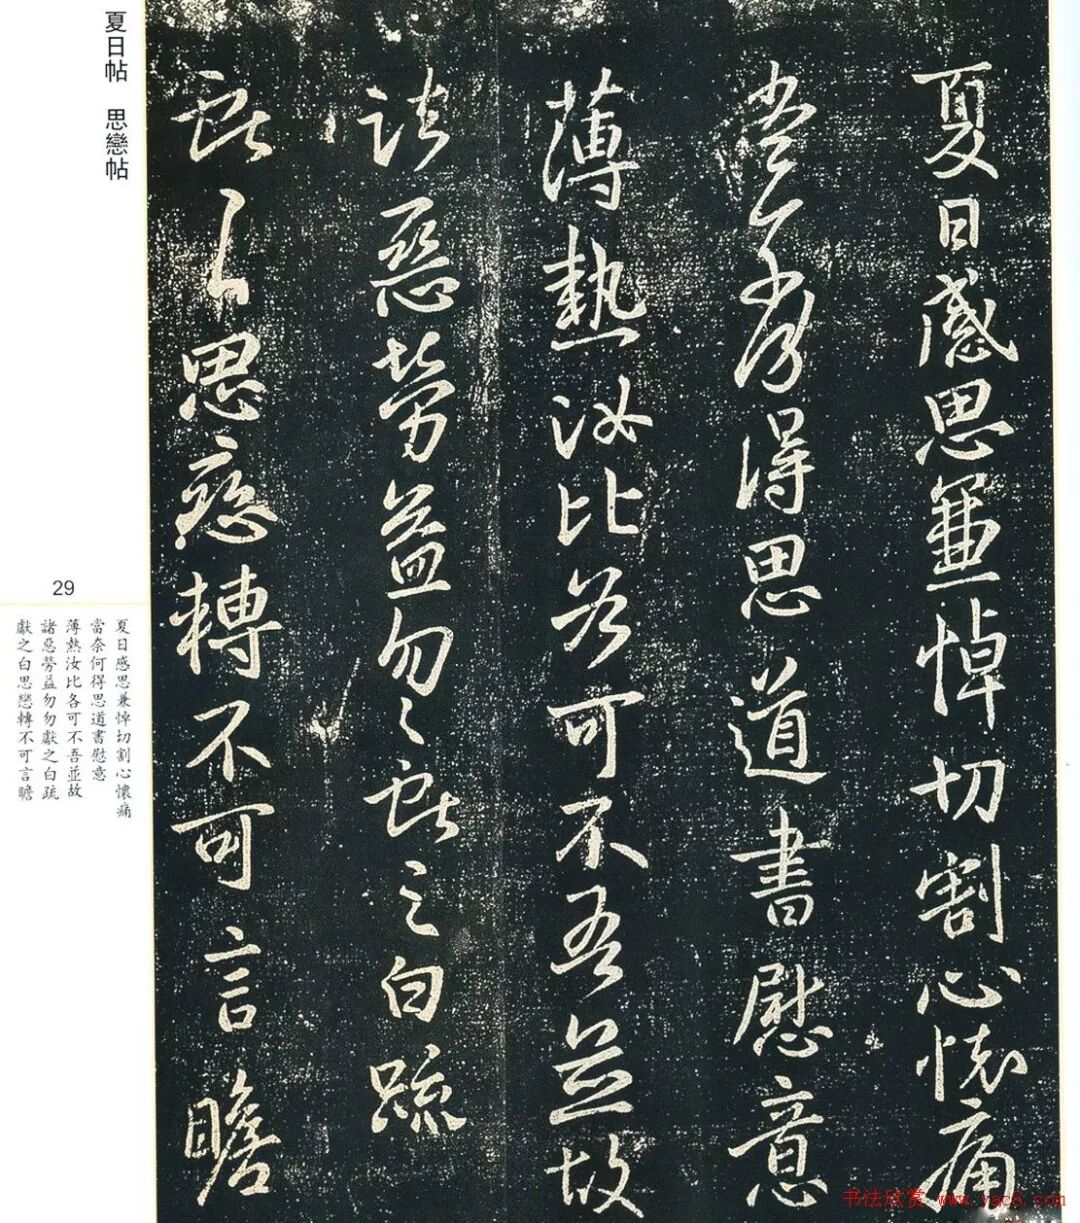 夏日感思兼悼切割心懷痛
當奈何得思道書慰意
薄熱汝比各可不吾並故
諸惡勞益勿々獻之白疏
獻之思戀轉不可言瞻
夏日帖 思戀帖
29
夏日感思兼悼切割心懷痛
當奈何得思道書慰意
薄熱汝比各可不吾並故
諸惡勞益勿勿獻之白疏
獻之白思戀轉不可言瞻
书法欣赏 www.yac8.com